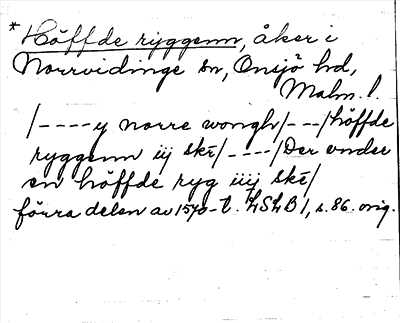 * Höffde ryggenn, åker i
Norrvidinge sn, Onsjö hd,
Malm. l.
/----y norre wongh/---/höffde
ryggenn iij skr/----/Der vnder
en höffde ryg iiij skr/
förra delen av 1570-t. LSLB 1, s. 86. orig.